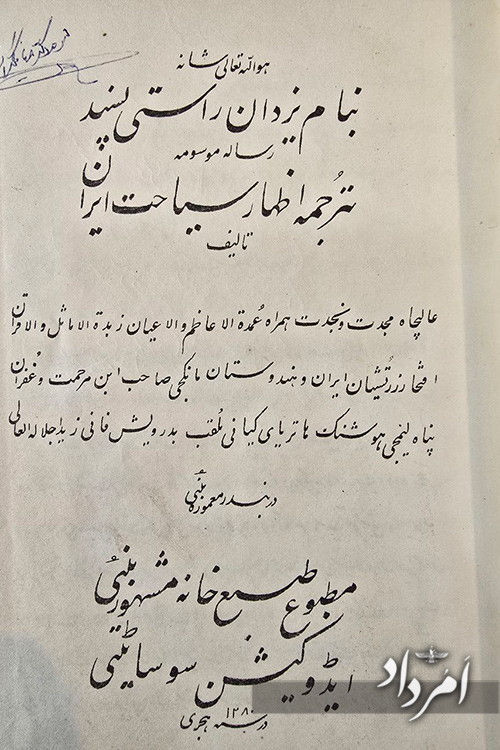 هوالله تعالی شانه
بنام یزدان راستی پسند
رساله موسومه
بترجمه اظهار سیاحت ایران
تالیف
عالیجاه مجدت و نجدت همراه عُمدة الاعاظم والاعیان زبدة الاماثل والاقران
افتخار زرتُشتیان ایران و هندوستان مانکجی صاحب ابن مرحمت و غُفران
پناه لیمجی هوشنگ هاتریای کیانی مُلقب بدرویش فانی زید اجلاله العالی
در بندر معموره بمبئی
مطبوع طبع خانه مشهور بمبئی
ایڈوکیشن سوسائٹی
۱۲۸۰
در سنه هجری
اَمُرداد